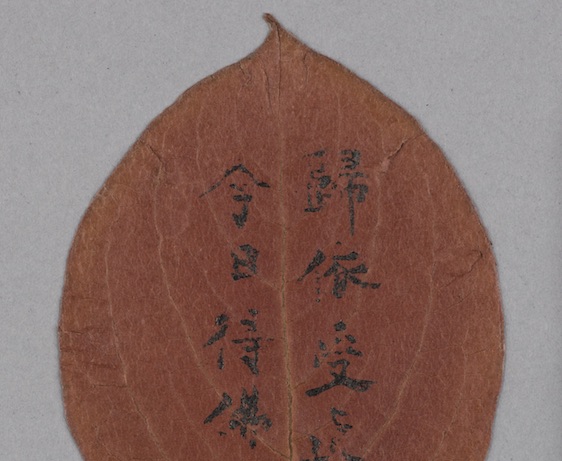 歸依受
今日待佛